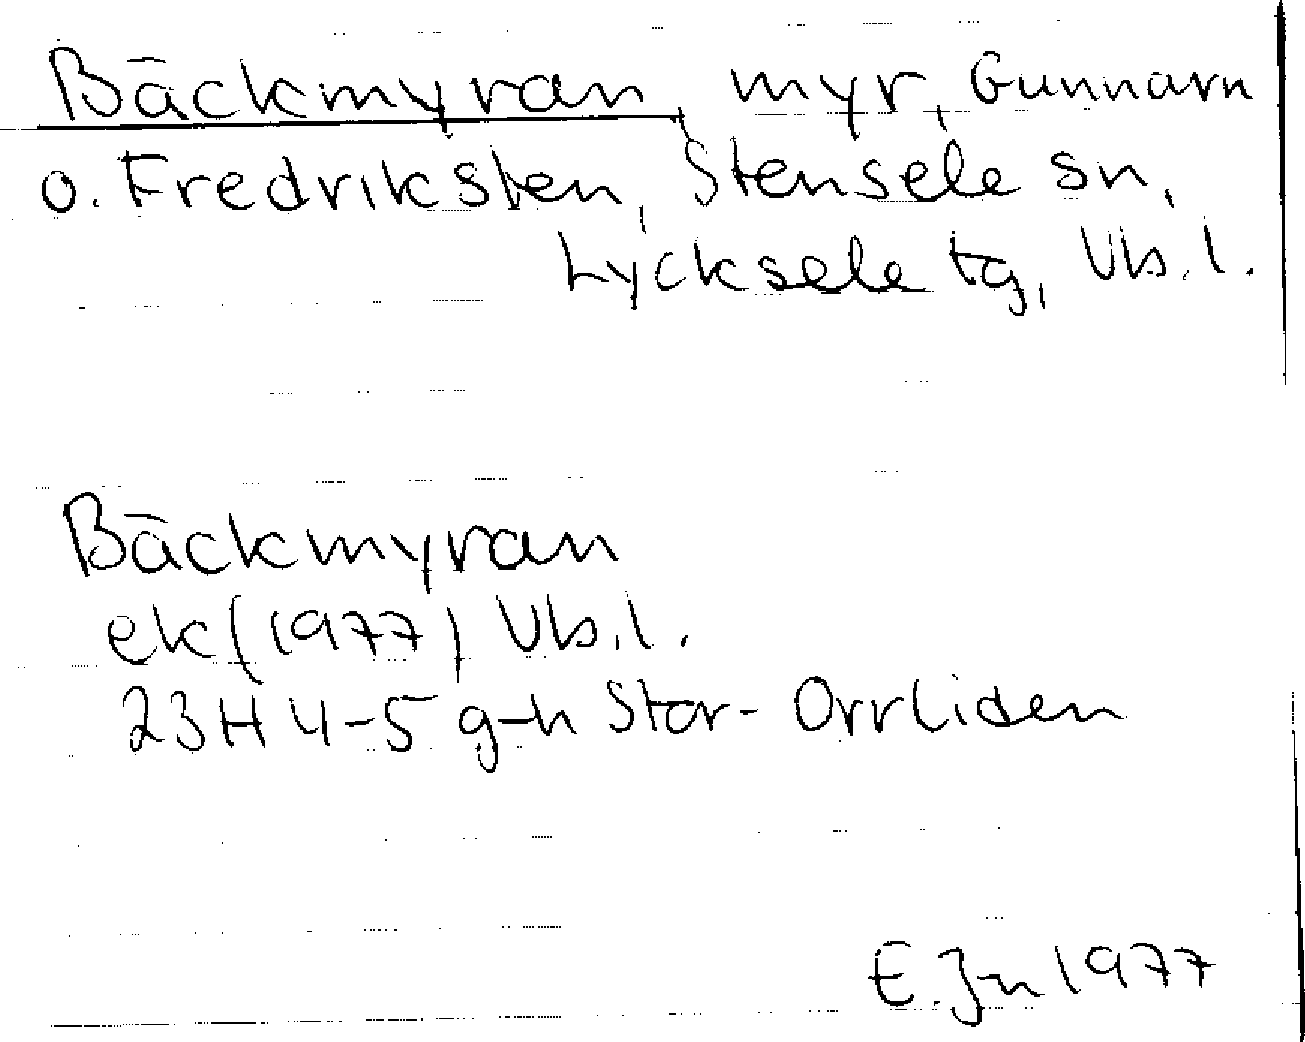 Bäckmyran, myr, Gunnarn
o. Fredriksten, Stensele sn,
Lycksele tg, Vb.l.
Bäckmyran
ek (1977) Vb.l.
23H 4-5 g-h Stor-Orrliden
E. Jn 1977